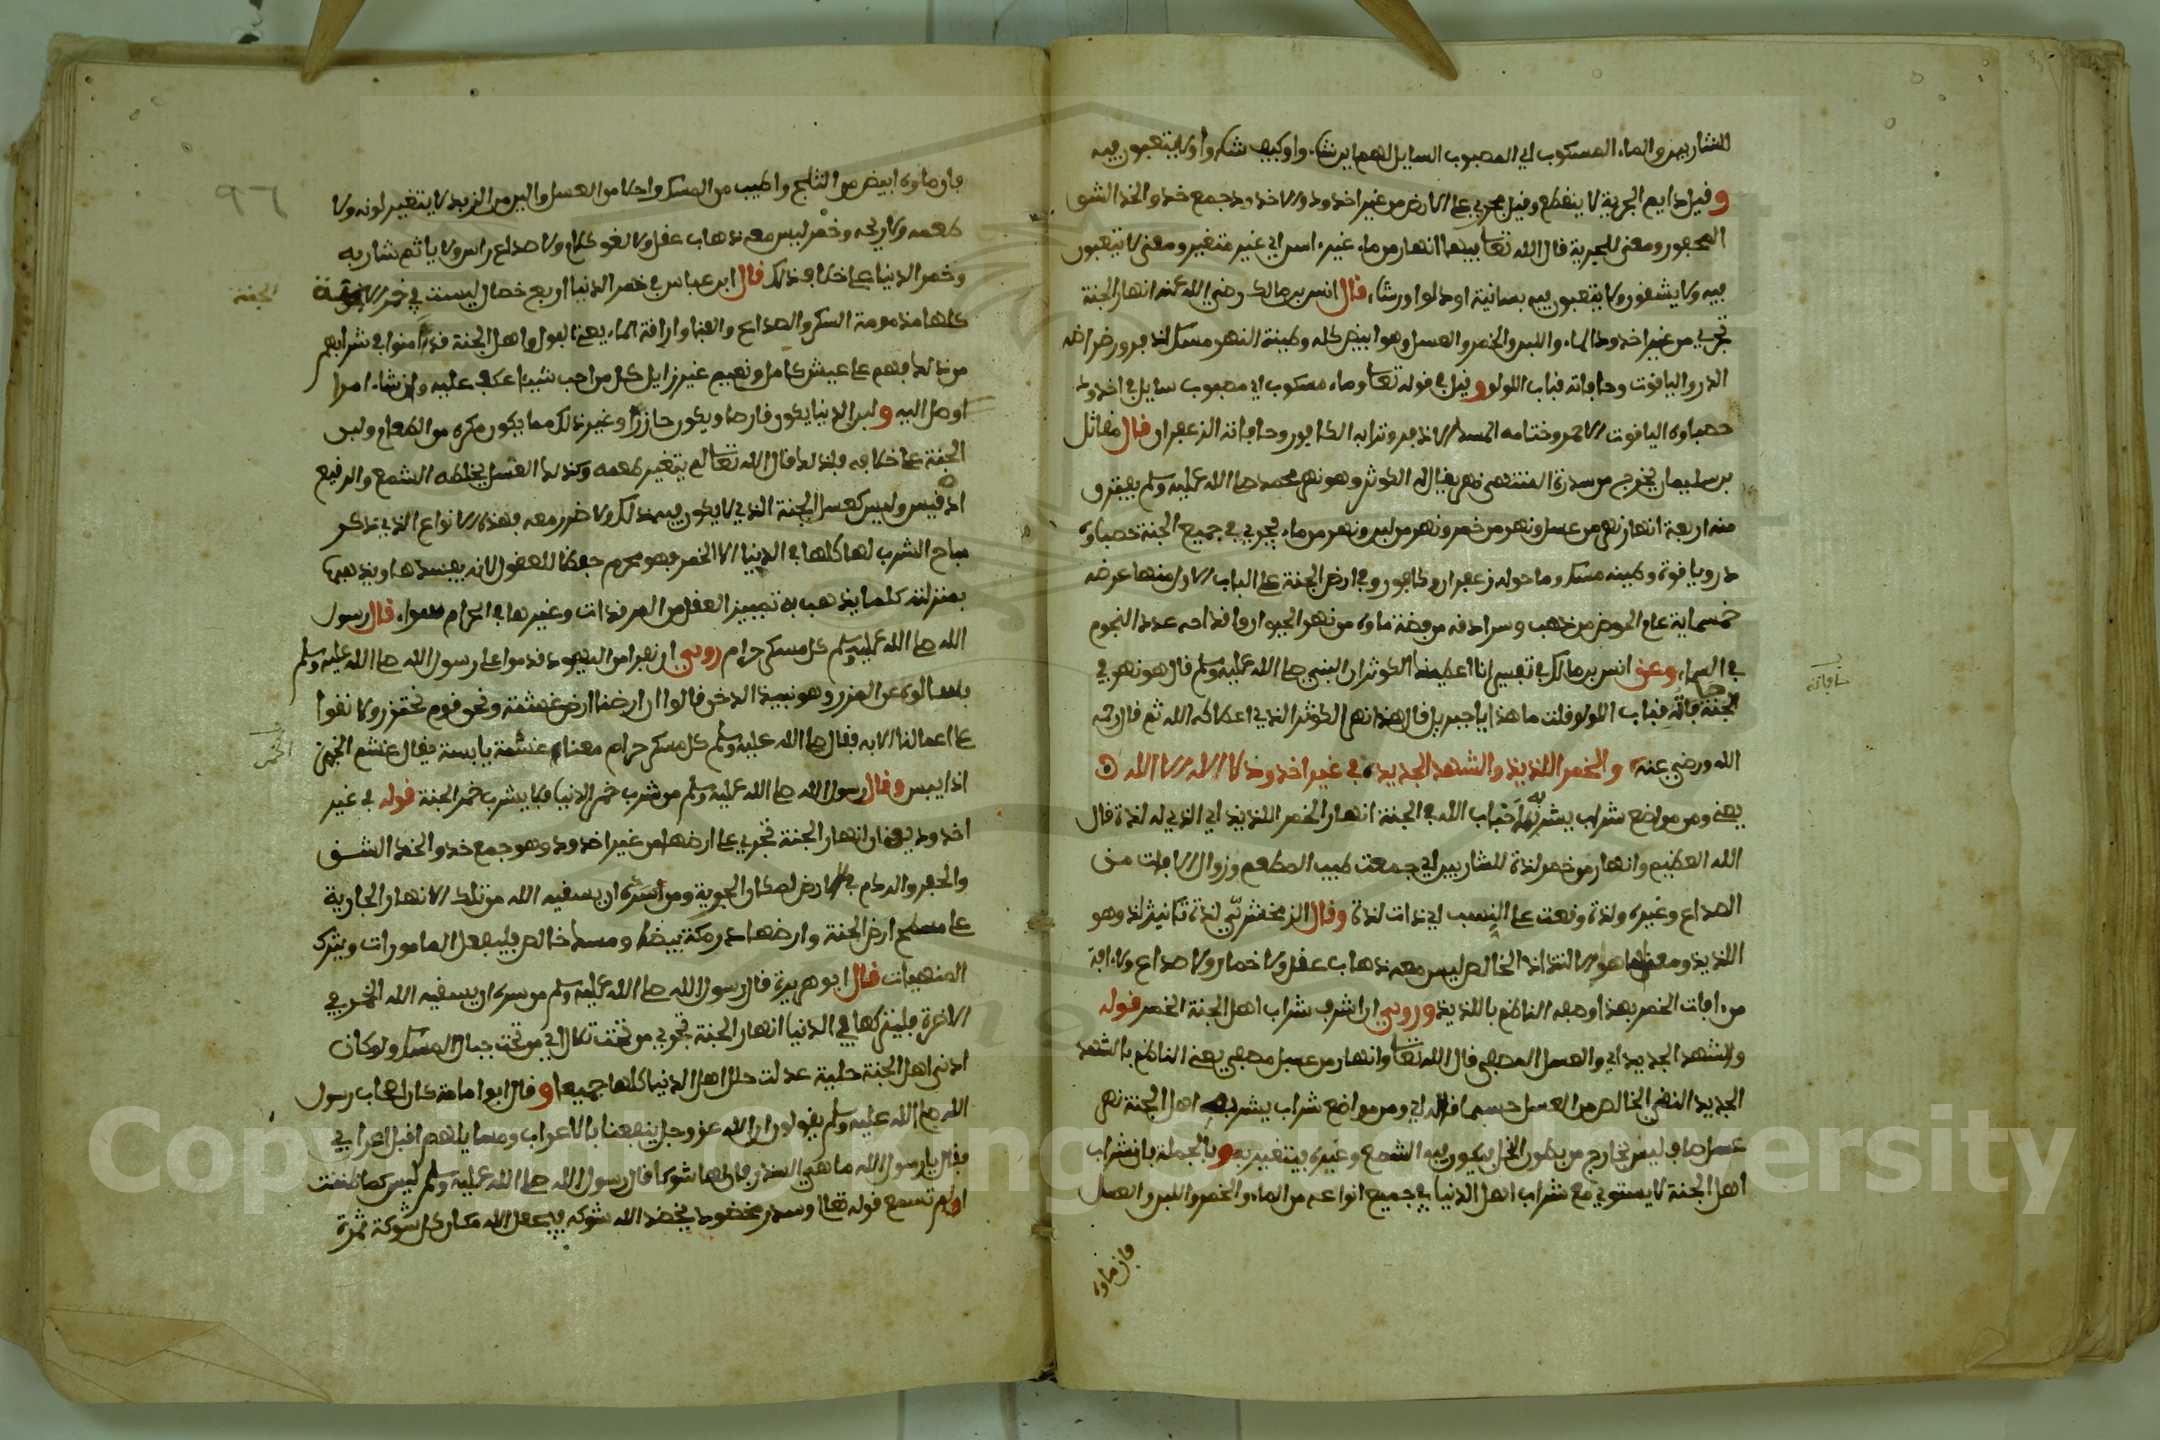 للشاربين والماء المسكوب اي المصبوب السايل لهم اين شاءوا وكيف شاءوا ولا يتعبون فيه
وفيل دايم الجرية لا ينقطع وفيل يجري على الارض من غير اخدود والاخدود جمع خد والخد الشق
المحفور ومعنى للجرية قال الله تعالى فيها انهار من ماء غير ءاسن اي غير متغير ومعنى لا يتعبون
فيه ولا يشقون ولا يتعبون فيه بسانية او دلو او رشاء قال انس بن مالك رضي الله عنه انهار الجنة
تجري من غير اخدود الماء واللبن والخمر والعسل وهو ابيض كله وطينة النهر مسك اذفر ورضراضه
الدر والياقوت وحافاته قباب اللولو وفيل في قوله تعالى وماء مسكوب اي مصبوب سايل في اخدود
حصباوه الياقوت الاحمر وختامه المسك الاذفر وترابه الكافور وحافاته الزعفران قال مقاتل
بن سليمان يخرج من سدرة المنتهى نهر يقال له الكوثر وهو نهر محمد صلى الله عليه وسلم يفترق
منه اربعة انهار نهر من عسل ونهر من خمر ونهر من لبن ونهر من ماء يجري في جميع الجنة حصباوه
در وياقوة وطينه مسك وما حوله زعفران وكافور وفي ارض الجنة على الباب الاول منها عرضه
خمسماية عام الحوض من ذهب وسرادقه من فضة ماوه من نهر الحيوان واقداحه عدد النجوم
في السماء وعن انس بن مالك في تفسير انا اعطيناك الكوثر ان النبي صلى الله عليه وسلم قال هو نهر في
الجنة حافاته قباب اللولو قلت ما هذا يا جبريل قال هذا نهر الكوثر الذي اعطاكه الله ثم قال رحمه
الله ورضي عنه والخمر اللذيذ والشهد الجديد في غير اخدود لا اله الا الله
يعني ومن مواضع شراب يشربه احباب الله في الجنة انهار الخمر اللذيذ اي الذي له لذة قال
الله العظيم وانهار من خمر لذة للشاربين اي جمعت طيب المطعم وزوال الافات من
الصداع وغيره ولذة ونعت على النسب اي ذات لذة وقال الزمخشري لذة تانيث لذ وهو
اللذيذ ومعناها هو الالتذاذ الخالص ليس معه ذهاب عقل ولا خمار ولا صداع ولا ءافة
من ءافات الخمر بهذا وصفه الناظم باللذيذ وروي ان اشرف شراب اهل الجنة الخمر قوله
والشهد الجديد اي والعسل المصفى قال الله تعالى وانهار من عسل مصفى يعني الناظم بالشهد
الجديد النقي الخالص من العسل حسبما قال اي ومن مواضع شراب يشربه اهل الجنة نهر
عسل صاف ليس بخارج من بطون النحل فيكون فيه الشمع وغيره فيتغير به وبالجملة فان شراب
اهل الجنة لا يستوي مع شراب اهل الدنيا في جميع انواعه من الماء والخمر واللبن والعسل
فان ماوه
حافاته
٩٦
فان ماوه ابيض من الثلج واطيب من المسك واحلا من العسل والين من الزبد لا يتغير لونه ولا
طعمه ولا ريحه وخمر ليس معه ذهاب عقل ولا لغو كلام ولا صداع راس ولا ياثم شاربه
وخمر الدنيا على خلاف ذلك قال ابن عباس في خمر الدنيا اربع خصال ليست في خمر
الجنة
كلها مذمومة السكر والصداع والقيا واراقة الماء يعني البول واهل الجنة قد امنوا في شرابهم
من ذلك فهم على عيش كامل ونعيم غير زايل كل من احب شيئا عكف عليه وان شاء امرا
اوصل اليه ولبن الدنيا يكون قارصا ويكون حازرا وغير ذلك مما يكون مكره من الطعام ولبن
الجنة على خلافه فلذلك قال الله تعالى لم يتغير طعمه وكذلك العسل يخالطه الشمع والدقيع
اذ فيس وليس كعسل الجنة الذي لا يكون فيه ذلك ولا ضرر معه فهذه الانواع الذي ذكر
مباح الشرب لها كلها في الدنيا الا الخمر فهو محرم حفظا للعقول لانه يفسدها ويذهبها
بمنزلته كلما يذهب به تمييز العقل من المرقدات وغيرها في الحرام سواء قال رسول
الله صلى الله عليه وسلم كل مسكر حرام روي ان نفرا من اليهود قدموا على رسول الله صلى الله عليه وسلم
فسالوه عن المزر وهو نبيذ الدخن قالوا ان ارضنا ارض عشمة ونحن قوم نحترز ولا نقوا
على اعمالنا الا به فقال صلى الله عليه وسلم كل مسكر حرام معناه عشمة يابسة يقال عشم الخبز
الخبز
اذا يبس وقال رسول الله صلى الله عليه وسلم من شرب خمر الدنيا فلا يشرب خمر الجنة قوله في غير
اخدود يعني ان انهار الجنة تجري على ارضها من غير اخدود وهو جمع خد والخد الشق
والحفر والردم في الارض لمكان الجرية ومن اسره ان يسقيه الله من تلك الانهار الجارية
على مسطح ارض الجنة وارضها درمكة بيضا ومسك خالص فليفعل المامورات ويترك
المنهيات قال ابو هريرة قال رسول الله صلى الله عليه وسلم من سره ان يسقيه الله الخمر في
الاخرة فليتركها في الدنيا انهار الجنة تجري من تحت تلال اي من تحت جبال المسك ولو كان
ادنى اهل الجنة حلية عدلت حلل اهل الدنيا كلها جميعا وقال ابو امامة كان اصحاب رسول
الله صلى الله عليه وسلم يقولون ان الله عز وجل ينفعنا بالاعراب ومسايلهم اقبل اعرابي
فقال يا رسول الله ما هي السدر فان لها شوكا قال رسول الله صلى الله عليه وسلم ليس كما ظننت
اولم تسمع قوله تعالى وسدر مخضود يخضد الله شوكه فيجعل الله مكان كل شوكة ثمرة
Copyright © King Saud University